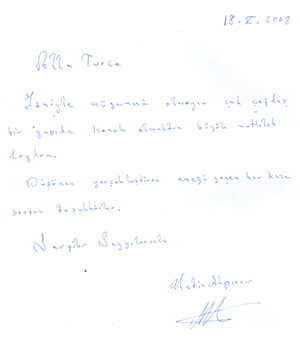 18.V.2008
Alla Turca
İsmiyle müsemma olmayan çok çağdaş
bir yapıda konuk olmaktan büyük mutluluk
duydum.
Düşünen gerçekleştiren emeği geçen her kese
sonsuz teşekkürler.
Sevgiler Saygılarımla
Metin Akpınar